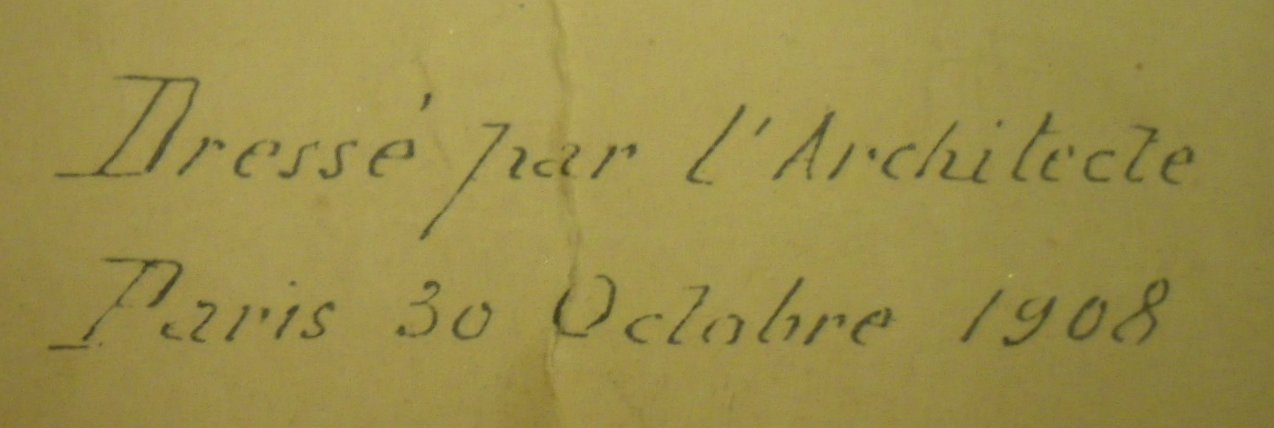 Dressé par l'Architecte
Paris 30 Octobre 1908